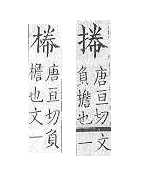 唐亘切文
負擔也一
唐亘切負
檐也文一